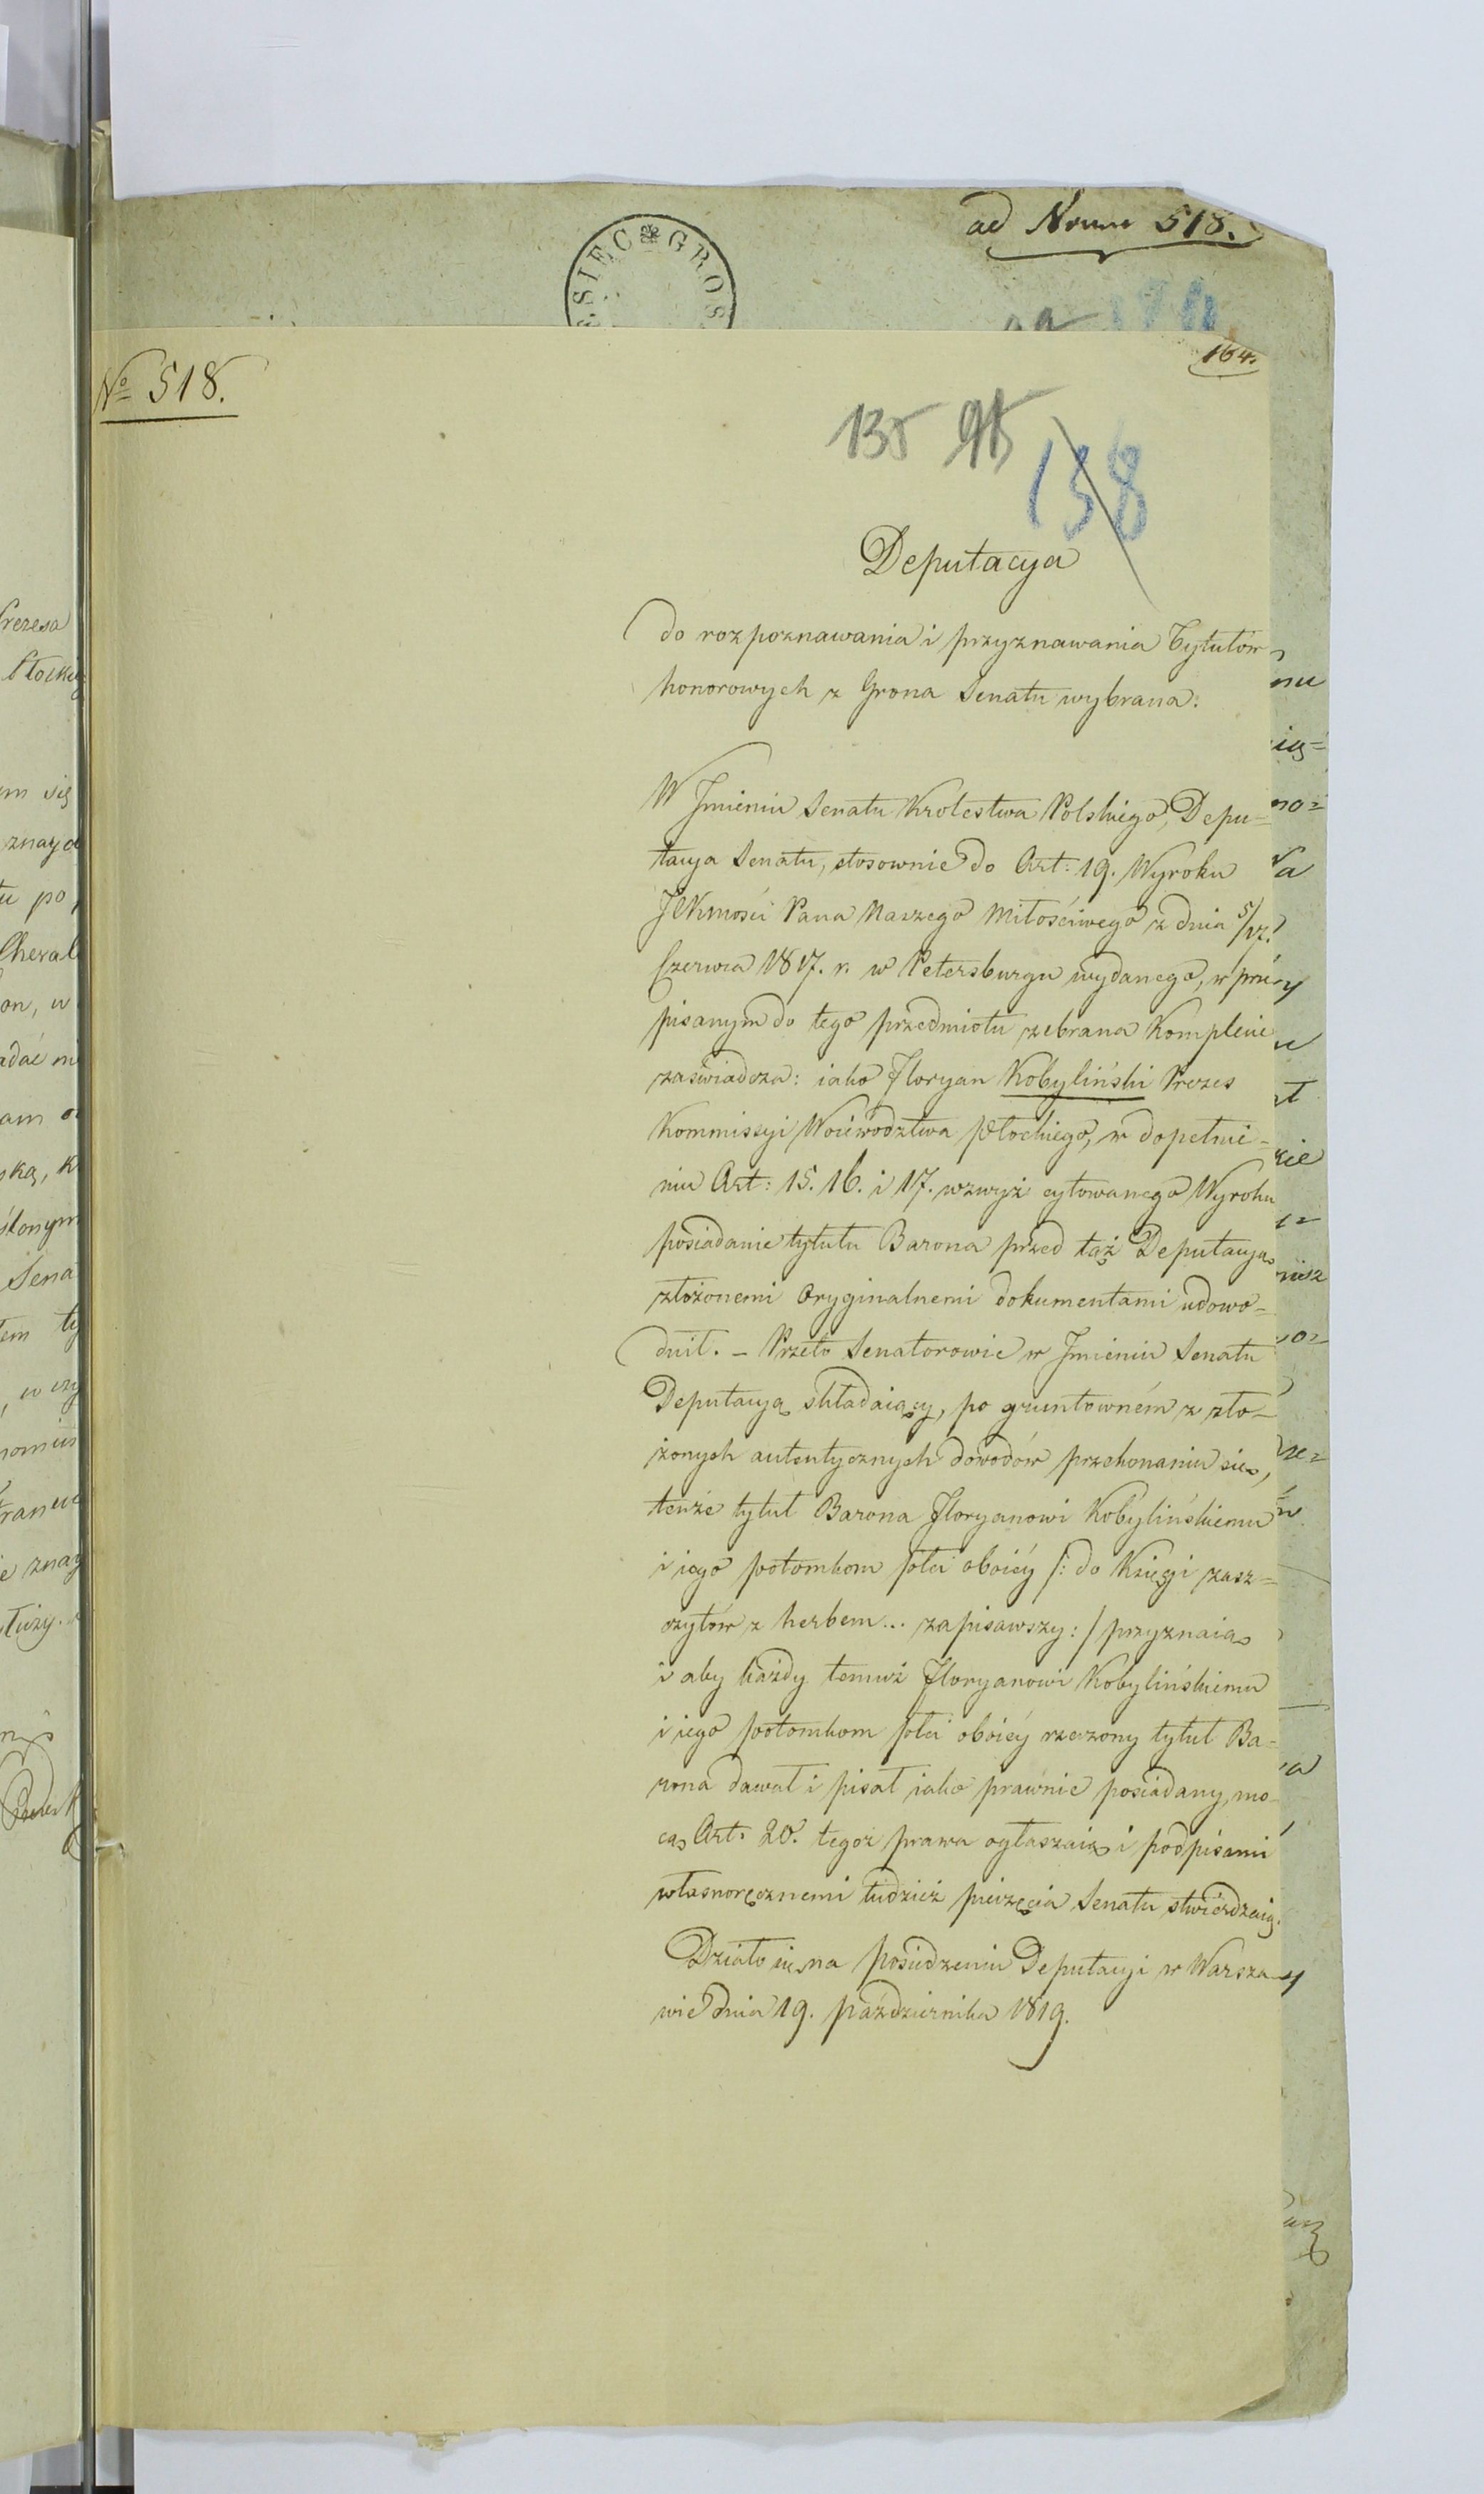 ad Num 518.
SIEC GROS
164.
No 518.
135 95
158
Deputacya
do rozpoznawania i przyznawania Tytułów
honorowych z Grona Senatu wybrana.
W Imieniu Senatu Krolestwa Polskiego, Depu=
tacya Senatu, stosownie do Art: 19. Wyroku
JKMości Pana Naszego Miłościwego z dnia 5/17.
Czerwca 1817. r. w Petersburgu wydanego, w prze-
pisanym do tego przedmiotu zebrana Komplecie
zaświadcza: iako Floryan Kobyliński Prezes
Kommissyi Woiewodztwa Płockiego, w dopełnie-
niu Art: 15. 16. i 17. wzwyż cytowanego Wyroku
posiadanie tytułu Barona przed taż Deputacyą
złożonemi Oryginalnemi dokumentami udowo=
dnił. - Przeto Senatorowie w Imieniu Senatu
Deputacyą składaiący, po gruntowném z zło-
żonych autentycznych dowodów przekonaniu się,
tenże tytuł Barona Floryanowi Kobylińskiemu
i iego potomkom płci oboiéy /: do Księgi zasz=
czytów z herbem... zapisawszy: / przyznaią
i aby każdy temuż Floryanowi Kobylińskiemu
i iego potomkom płci oboiéy rzeczony tytuł Ba=
rona dawał i pisał iako prawnie posiadany, mo-
cą Art. 20. tegoż prawa ogłaszaią i podpisami
własnoręcznemi tudzież pieczęcią Senatu stwierdzaią.
Działo się na posiedzeniu Deputacyi w Warsza-
wie dnia 19. października 1819.